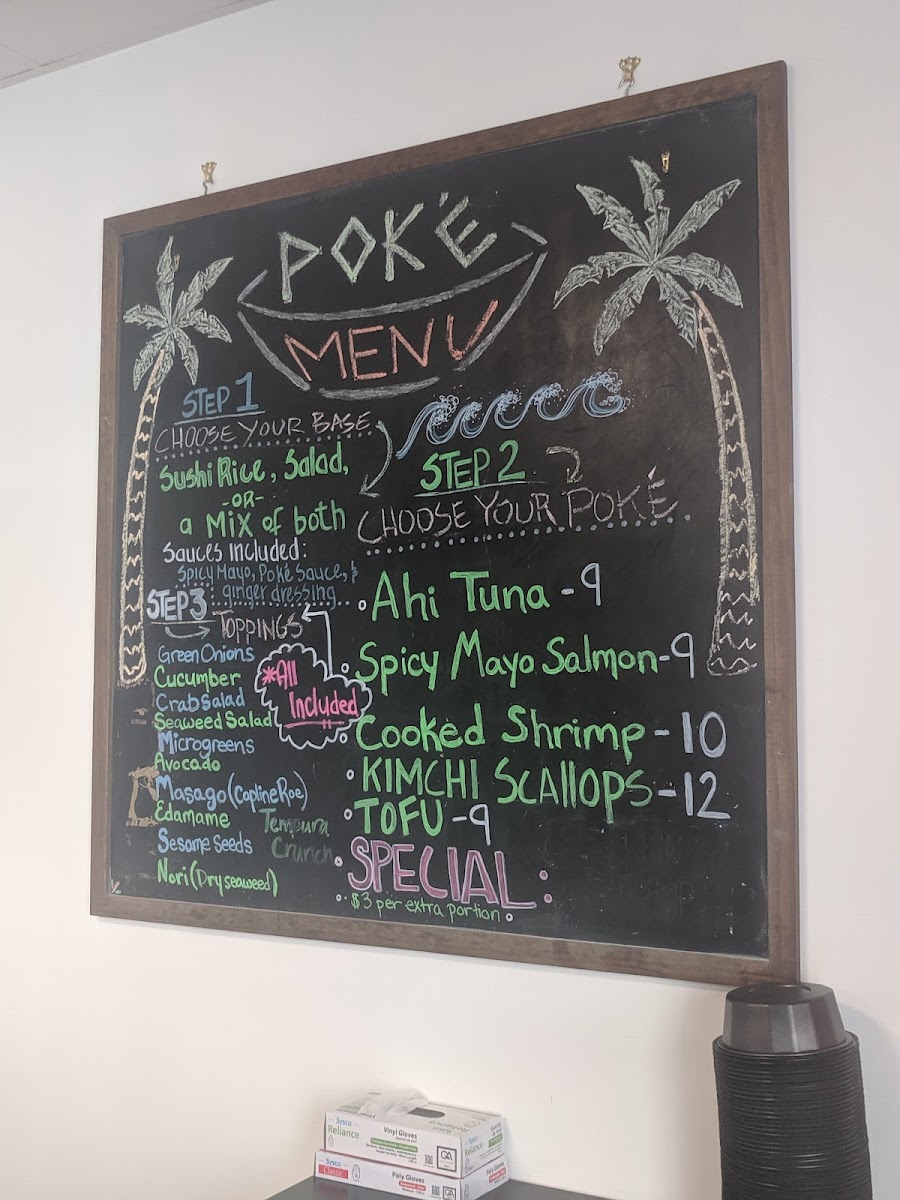 POKÉ
MENU
STEP 1
CHOOSE YOUR BASE
Sushi Rice, Salad,
-OR-
a Mix of both
Sauces included:
Spicy Mayo, Poké Sauce, &
ginger dressing
STEP 2
CHOOSE YOUR POKÉ
Ahi Tuna - 9
Spicy Mayo Salmon - 9
Cooked Shrimp - 10
KIMCHI SCAllOPS - 12
TOFU - 9
SPECIAL:
$3 per extra portion
STEP 3
TOPPINGS
*All
Included
Green Onions
Cucumber
Crab Salad
Seaweed Salad
Microgreens
Avocado
Masago (Capline Roe)
Edamame
Tempura
Crunch
Sesame Seeds
Nori (Dry seaweed)
Sysco
Reliance
Vinyl Gloves
Sysco
Classic
Poly Gloves